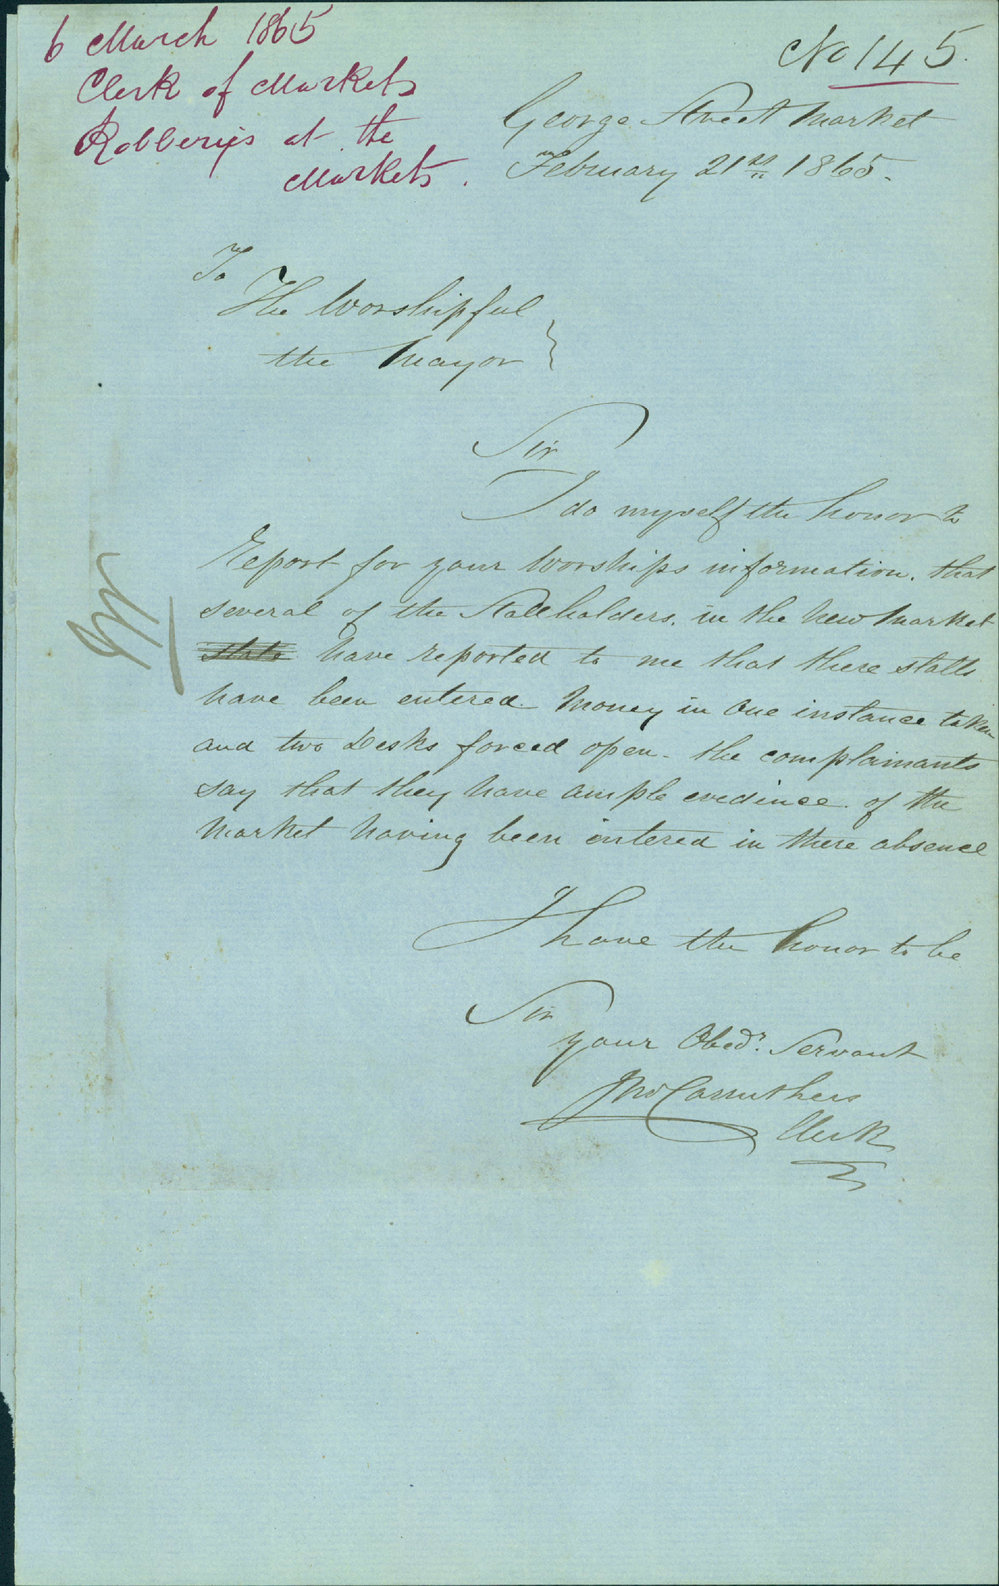 6 March 1865
Clerk of Markets
Robberys at the
Markets.
No 145.
George Street Market
February 21st 1865.
To
The Worshipful
the Mayor
Sir
I do myself the honor to
Report for your Worships information. that
several of the Stallholders. in the New Market
have reported to me that there stalls
have been entered. Money in One instance taken
and two Desks forced open. the complainants
say that they have ample evidence. of the
Market having been entered in there absence
I have the honor to be
Sir
Your Obedr. Servant
Jno Carruthers
Clerk